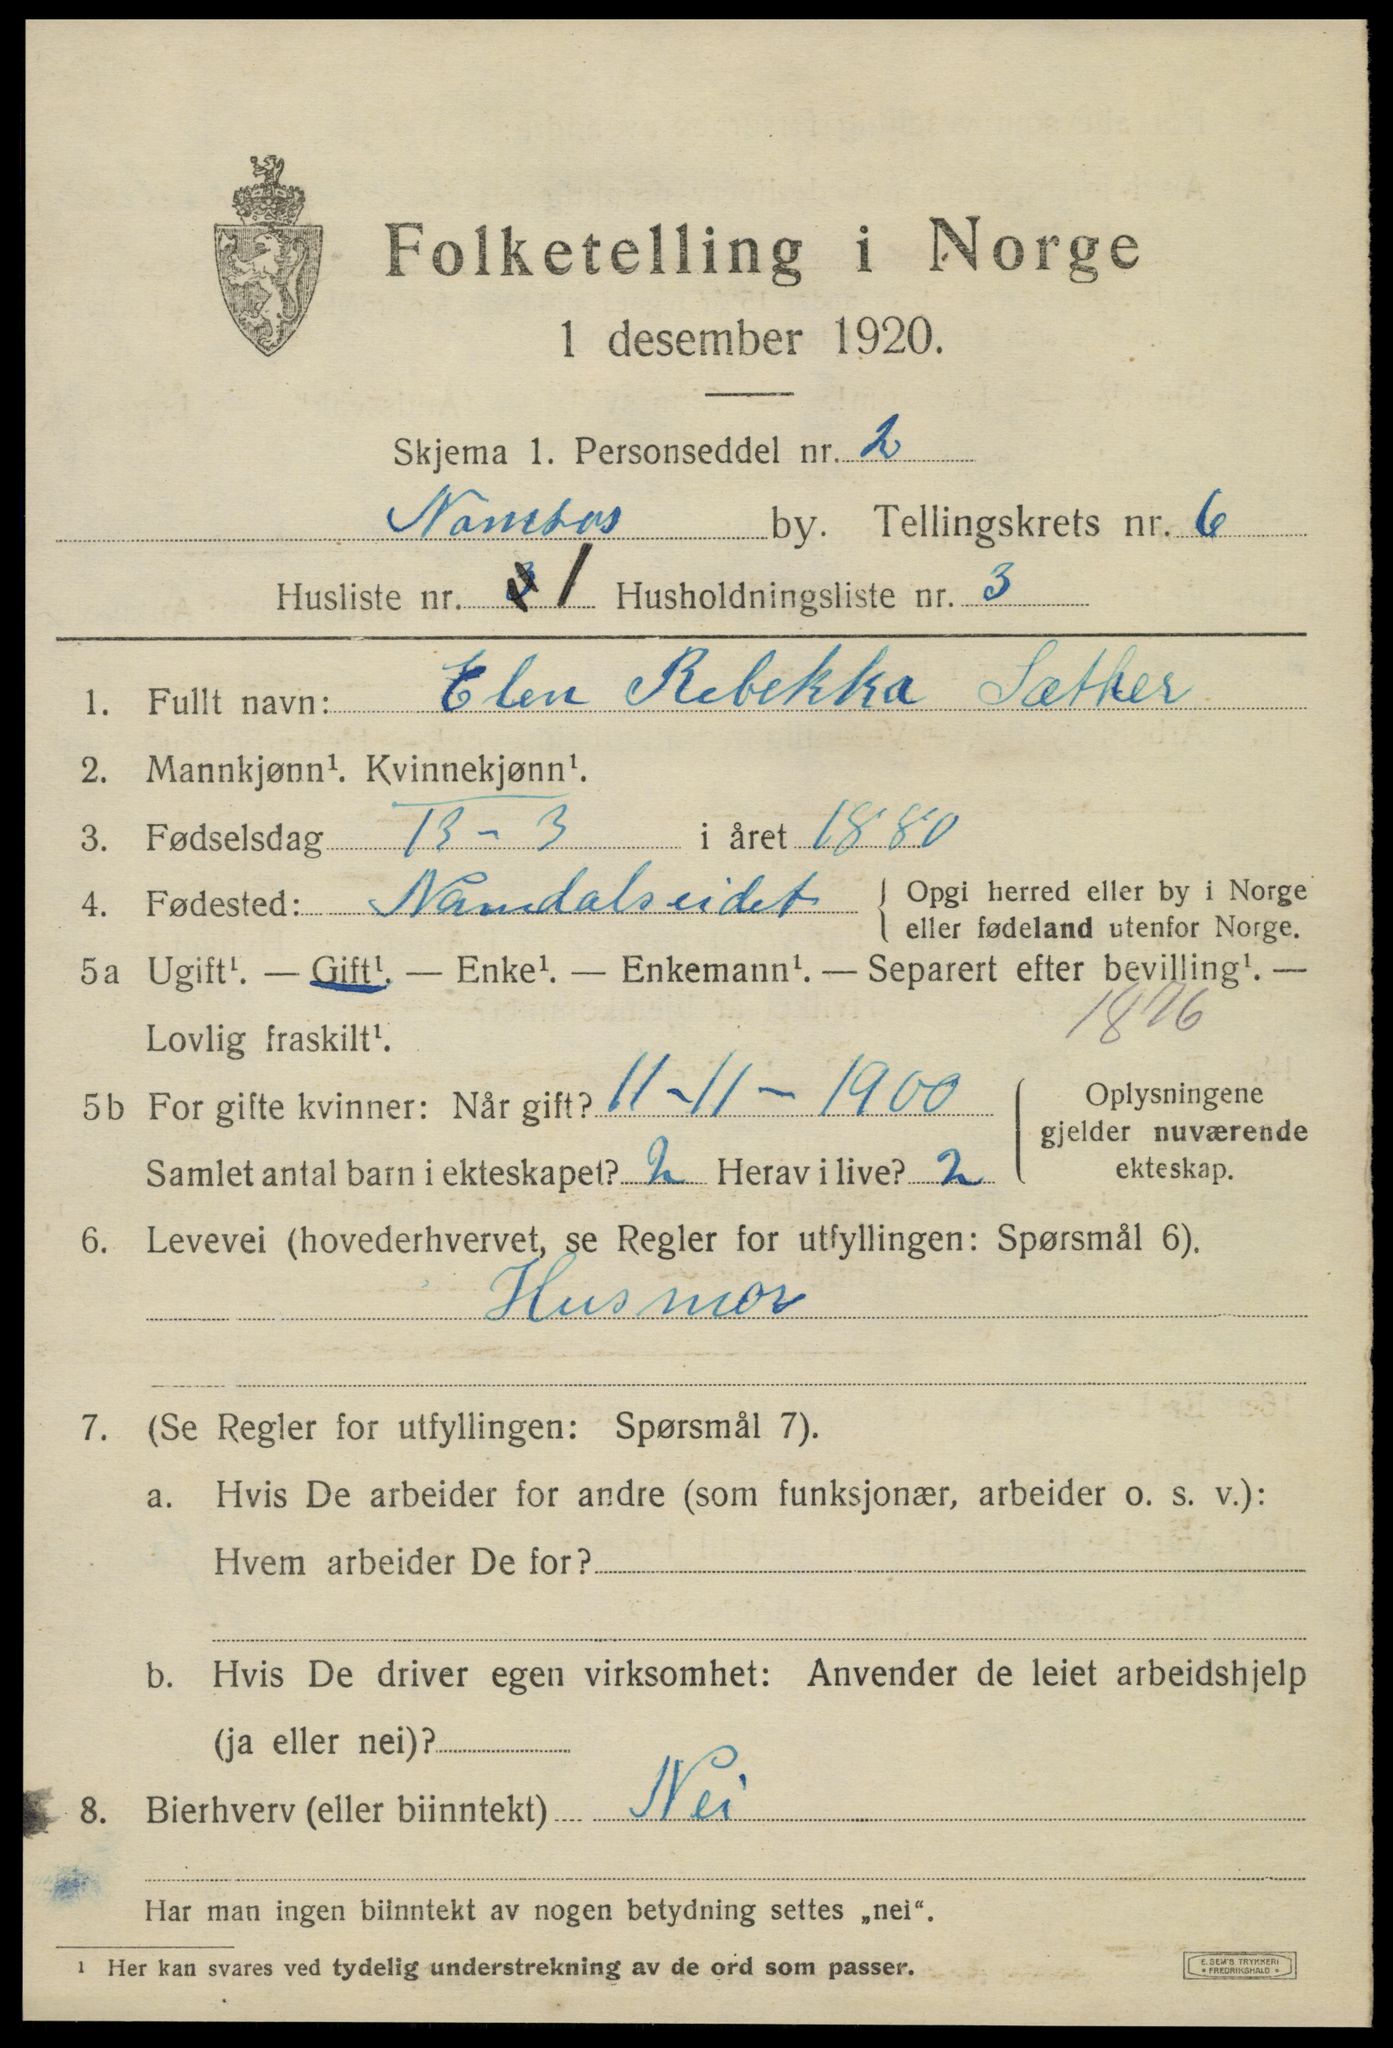 Folketelling i Norge
1 desember 1920.
Skjema 1. Personseddel nr. 2
Namsos by. Tellingskrets nr. 6
Husliste nr. 3 1 Husholdningsliste nr. 3
1. Fullt navn: Elen Rebekka Sæther
2. Mannkjønn¹. Kvinnekjønn¹.
3. Fødselsdag 13-3 i året 1880
4. Fødested: Namdalseidet { Opgi herred eller by i Norge
eller fødeland utenfor Norge.
5a Ugift¹. — Gift¹. — Enke¹. — Enkemann¹. — Separert efter bevilling¹. —
1876
Lovlig fraskilt¹.
5b For gifte kvinner: Når gift? 11-11-1900
Samlet antal barn i ekteskapet? 2 Herav i live? 2
Oplysningene
gjelder nuværende
ekteskap.
6. Levevei (hovederhvervet, se Regler for utfyllingen: Spørsmål 6).
Husmor
7. (Se Regler for utfyllingen: Spørsmål 7).
a. Hvis De arbeider for andre (som funksjonær, arbeider o. s. v.):
Hvem arbeider De for?
b. Hvis De driver egen virksomhet: Anvender de leiet arbeidshjelp
(ja eller nei)?
8. Bierhverv (eller biinntekt) Nei
Har man ingen biinntekt av nogen betydning settes „nei“.
¹ Her kan svares ved tydelig understrekning av de ord som passer.
E. SEM'S TRYKKERI
* FREDRIKSHALD *